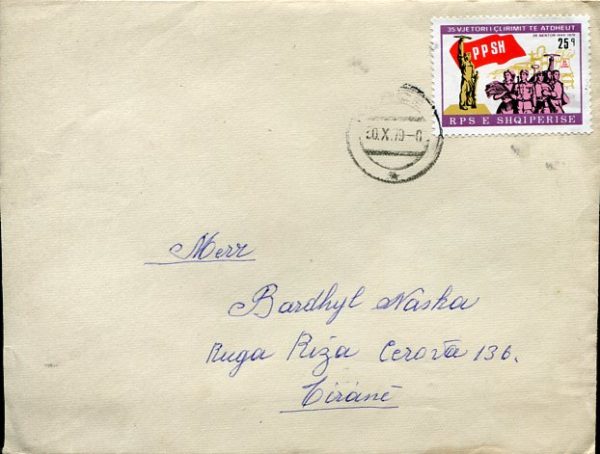 35 VJETORI I ÇLIRIMIT TE ATDHEUT
29 NENTOR 1944-1979
25q
PPSH
RPS E SHQIPERISE
Merr
Bardhyl Naska
Ruga Riza Cerova 136.
Tiranë